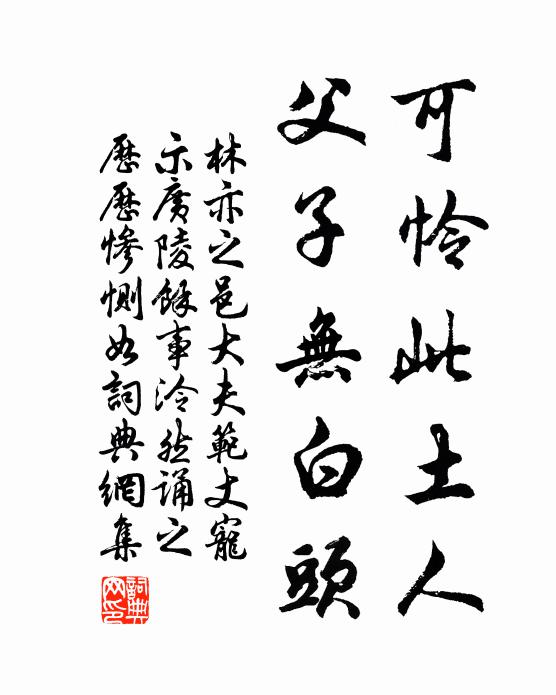 可怜此土人
父子無白頭
林亦之邑大夫範丈寵
示廣陵餘事泠然誦之
歷歷慘惻如詞典網集
詞典網印